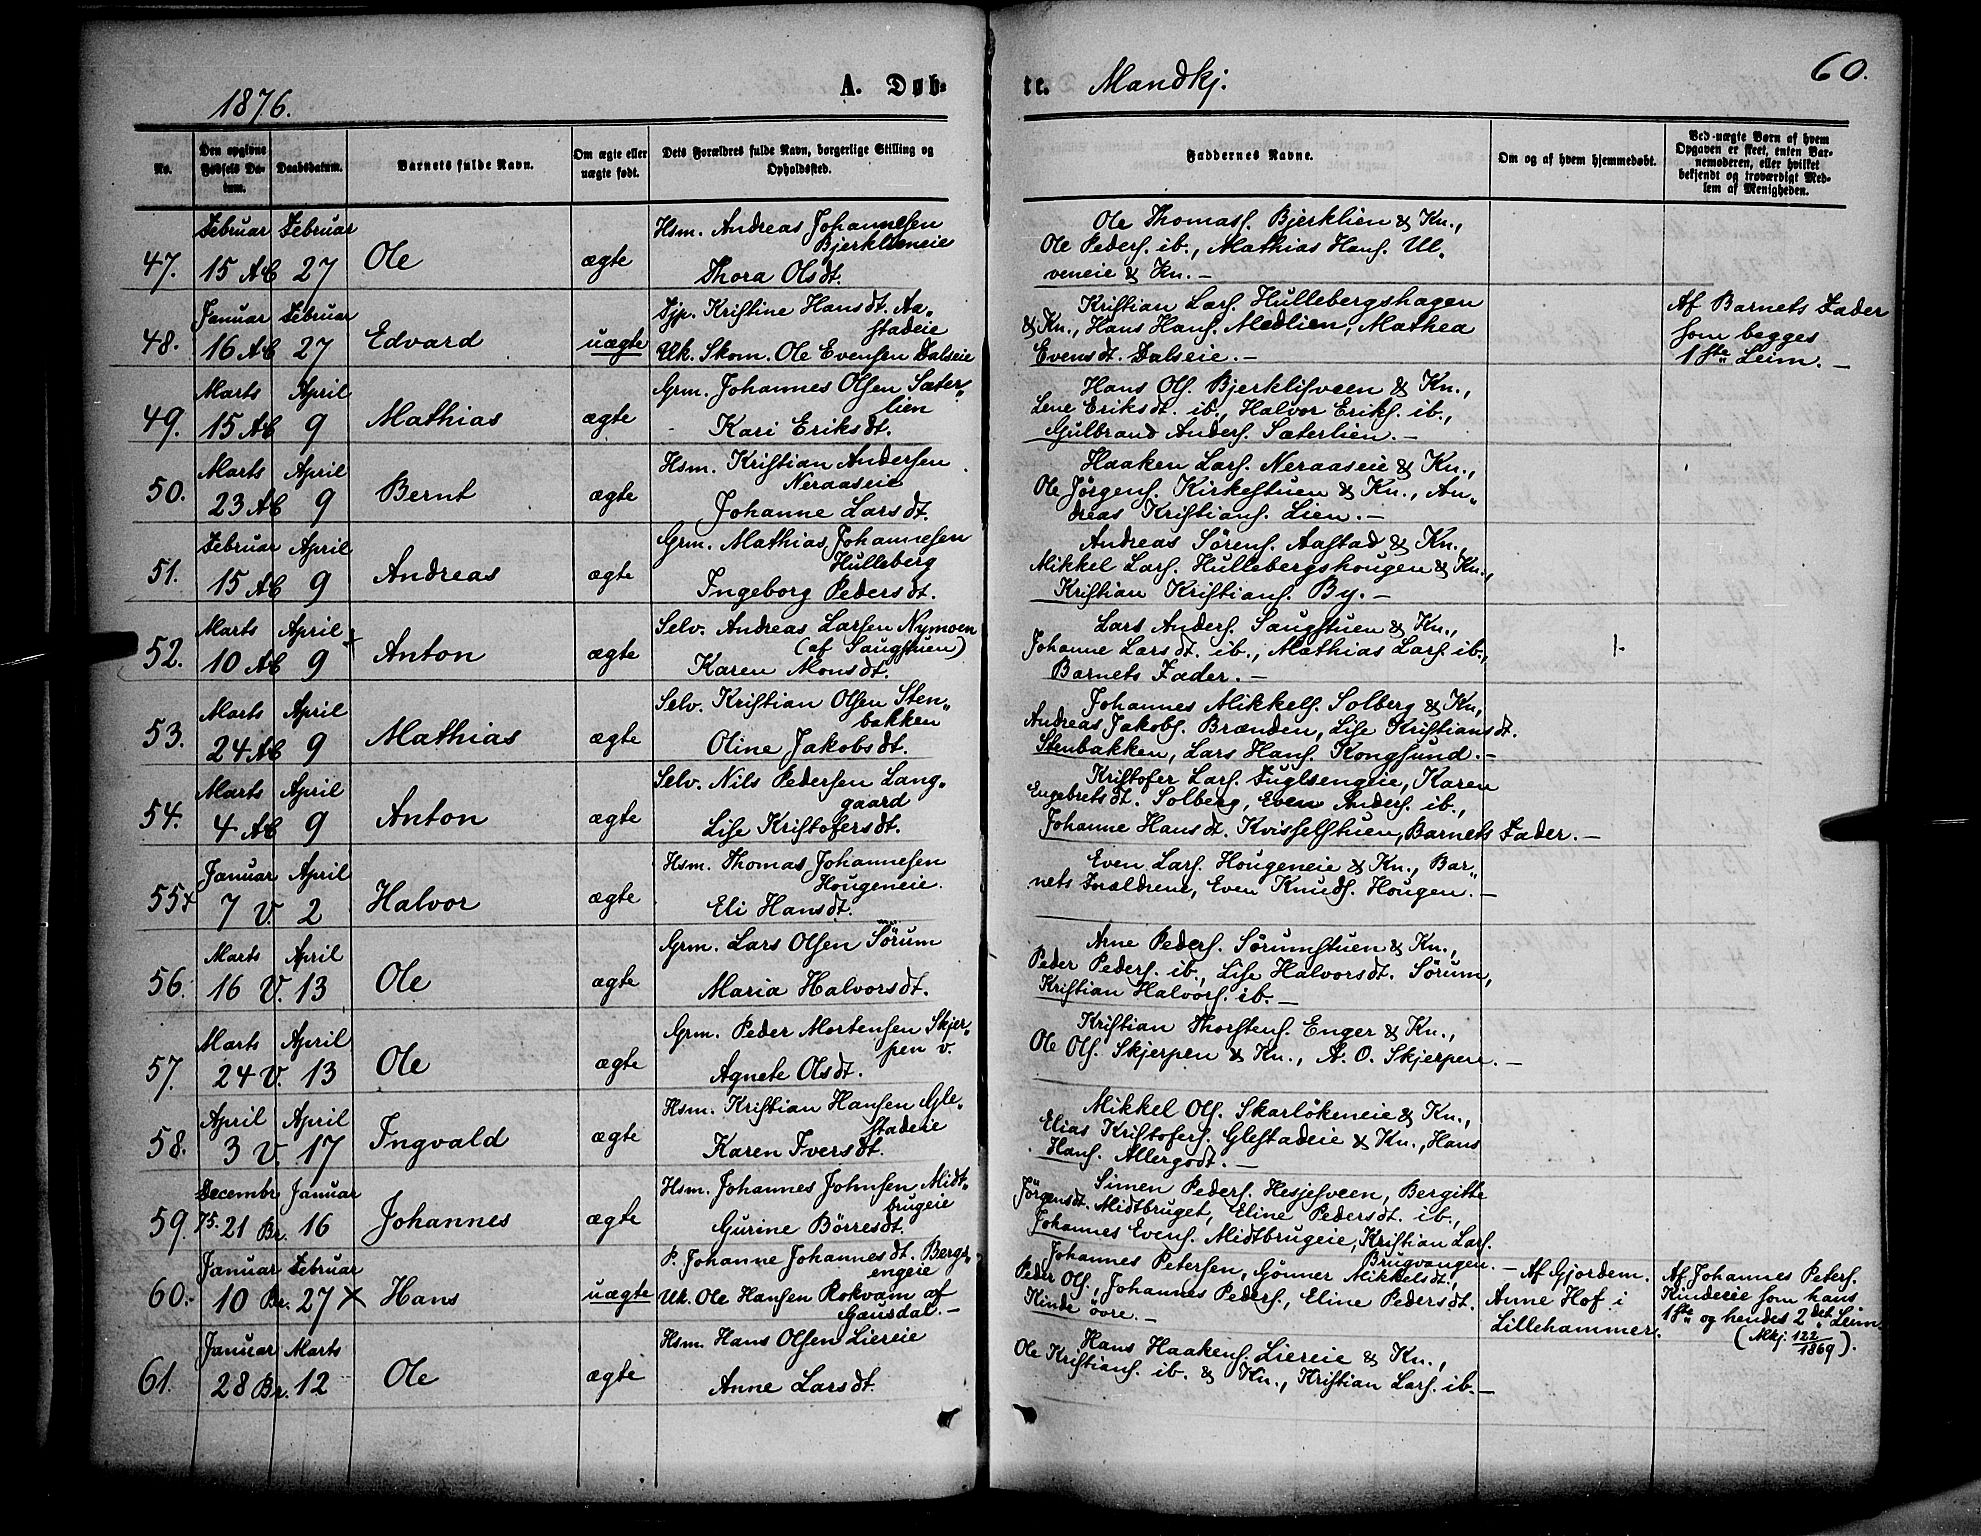 1876.
A. Døb-
te. Mandkj.
60.
No.
Den opgivne Fødsels Datum.
Daabsdatum.
Barnets fulde Navn.
Om ægte eller uægte født.
Dets Forældres fulde Navn, borgerlige Stilling og Opholdssted.
Faddernes Navne.
Om og af hvem hjemmedøbt.
Ved uægte Børn af hvem Opgaven er skeet, enten Barnemoderen, eller hvilket bekjendt og troværdigt Medlem af Menigheden.
47. Februar 15 Ab Februar 27 Ole ægte
Hsm. Andreas Johannesen
Bjerklieneie
Thora Olsdt.
Ole Thomass. Bjerklien & Kn.,
Ole Peders. ib., Mathias Hans. Ul-
veneie & Kn. -
48. Januar 16 Ab Februar 27 Edvard uægte
Pjp. Kristine Hansdt. Aa-
stadeie
Uk. Skom. Ole Evensen Dalseie
Kristian Lars. Hullebergshagen
& Kn., Hans Hans. Medlien, Mathea
Evensdt. Dalseie. -
Af Barnets Fader
som begges
1ste Leierm. -
49. Marts 15 Ab April 9 Mathias ægte
Grm. Johannes Olsen Sæter-
lien
Kari Eriksdt.
Hans Ols. Bjerklisveen & Kn.,
Lene Eriksdt. ib., Halvor Eriks. ib.,
Gulbrand Anders. Sæterlien. -
50. Marts 23 Ab April 9 Bernt ægte
Hsm. Kristian Andersen
Neraaseie
Johanne Larsdt.
Haaken Lars. Neraaseie & Kn.,
Ole Jörgens. Kirkestuen & Kn., An-
dreas Kristians. Lien. -
51. Februar 15 Ab April 9 Andreas ægte
Grm. Mathias Johannesen
Hulleberg
Ingeborg Pedersdt.
Andreas Sörens. Aastad & Kn.,
Mikkel Lars. Hullebergshougen & Kn.,
Kristian Kristians. By. -
52. Marts 10 Ab April 9 Anton ægte
Selv. Andreas Larsen Nymoen
(af Saugstuen)
Karen Monsdt.
Lars Anders. Saugstuen & Kn.,
Johanne Larsdt. ib., Mathias Lars. ib.,
Barnets Fader. -
53. Marts 24 Ab April 9 Mathias ægte
Selv. Kristian Olsen Sten-
bakken
Oline Jakobsdt.
Johannes Mikkels. Solberg & Kn.,
Andreas Jakobs. Brænden, Lise Kristiansdt.
Stenbakken, Lars Hans. Kongsund. -
54. Marts 4 Ab April 9 Anton ægte
Selv. Nils Pedersen Lang-
gaard
Lise Kristofersdt.
Kristofer Lars. Fuglsengeie, Karen
Engebretsdt. Solberg, Even Anders. ib.,
Johanne Hansdt. Kvisselstuen, Barnets Fader. -
55 x Januar 7 V. April 2 Halvor ægte
Hsm. Thomas Johannesen
Hougeneie.
Eli Hansdt.
Even Lars. Hougeneie & Kn., Bar-
nets Forældrene, Even Knuds. Hougen. -
56. Marts 16 V. April 13 Ole ægte
Grm. Lars Olsen Sörum
Maria Halvorsdt.
Arne Peders. Sörumstuen & Kn.,
Peder Peders. ib., Lise Halvorsdt. Sörum,
Kristian Halvors. ib. -
57. Marts 24 V. April 13 Ole ægte
Grm. Peder Mortensen Skjer-
pen v.
Agnete Olsdt.
Kristian Thorstens. Enger & Kn.,
Ole Ols. Skjerpen & Kn., A. O. Skjerpen. -
58. April 3 V. April 17 Ingvald ægte
Hsm. Kristian Hansen Gle-
stadeie
Karen Iversdt.
Mikkel Ols. Skarlökeneie & Kn.,
Elias Kristofers. Glestadeie & Kn., Hans
Hans. Allergodt. -
59. Decembr 75. 21 Br. Januar 16 Johannes ægte
Hsm. Johannes Johnsen Midt-
brugeie
Gurine Börresdt.
Simen Peders. Hesjesveen, Bergitte
Jörgensdt. Midtbruget, Eline Pedersdt. ib.,
Johannes Evens. Midtbrugeie, Kristian Lars.
Brugvangen. -
60. Januar 10 Br. Februar 27 x Hans uægte
P. Johanne Johannesdt. Bergs-
engeie
Uk. Ole Hansen Rokvam af
Gausdal. -
Johannes Petersen, Gönner Mikkelsdt.,
Peder Ols., Johannes Peders., Eline Pedersdt.
Kinde övre. -
Af Gjordem.
Anne Hof i
Lillehammer.
Af Johannes Peters.
Kindeeie som hans
1ste og hendes 2det Leierm.
(Mkj. 122/1869).
61. Januar 28 Br. Marts 12 Ole ægte
Hsm. Hans Olsen Liereie
Anne Larsdt.
Hans Haakens. Liereie & Kn.,
Ole Kristians. ib. & Kn., Kristian Lars. ib. -